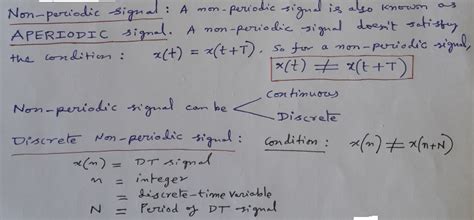 Non-periodic signal : A non-periodic signal is also known as
APERIODIC signal. A non-periodic signal doesn't satisfy
the condition : x(t) = x(t+T). So for a non-periodic signal,
x(t) ≠ x(t+T)
Non-periodic signal can be
Continuous
Discrete
Discrete Non-periodic signal : Condition : x(n) ≠ x(n+N)
x(n) = DT signal
n = integer
= discrete-time variable
N = Period of DT signal